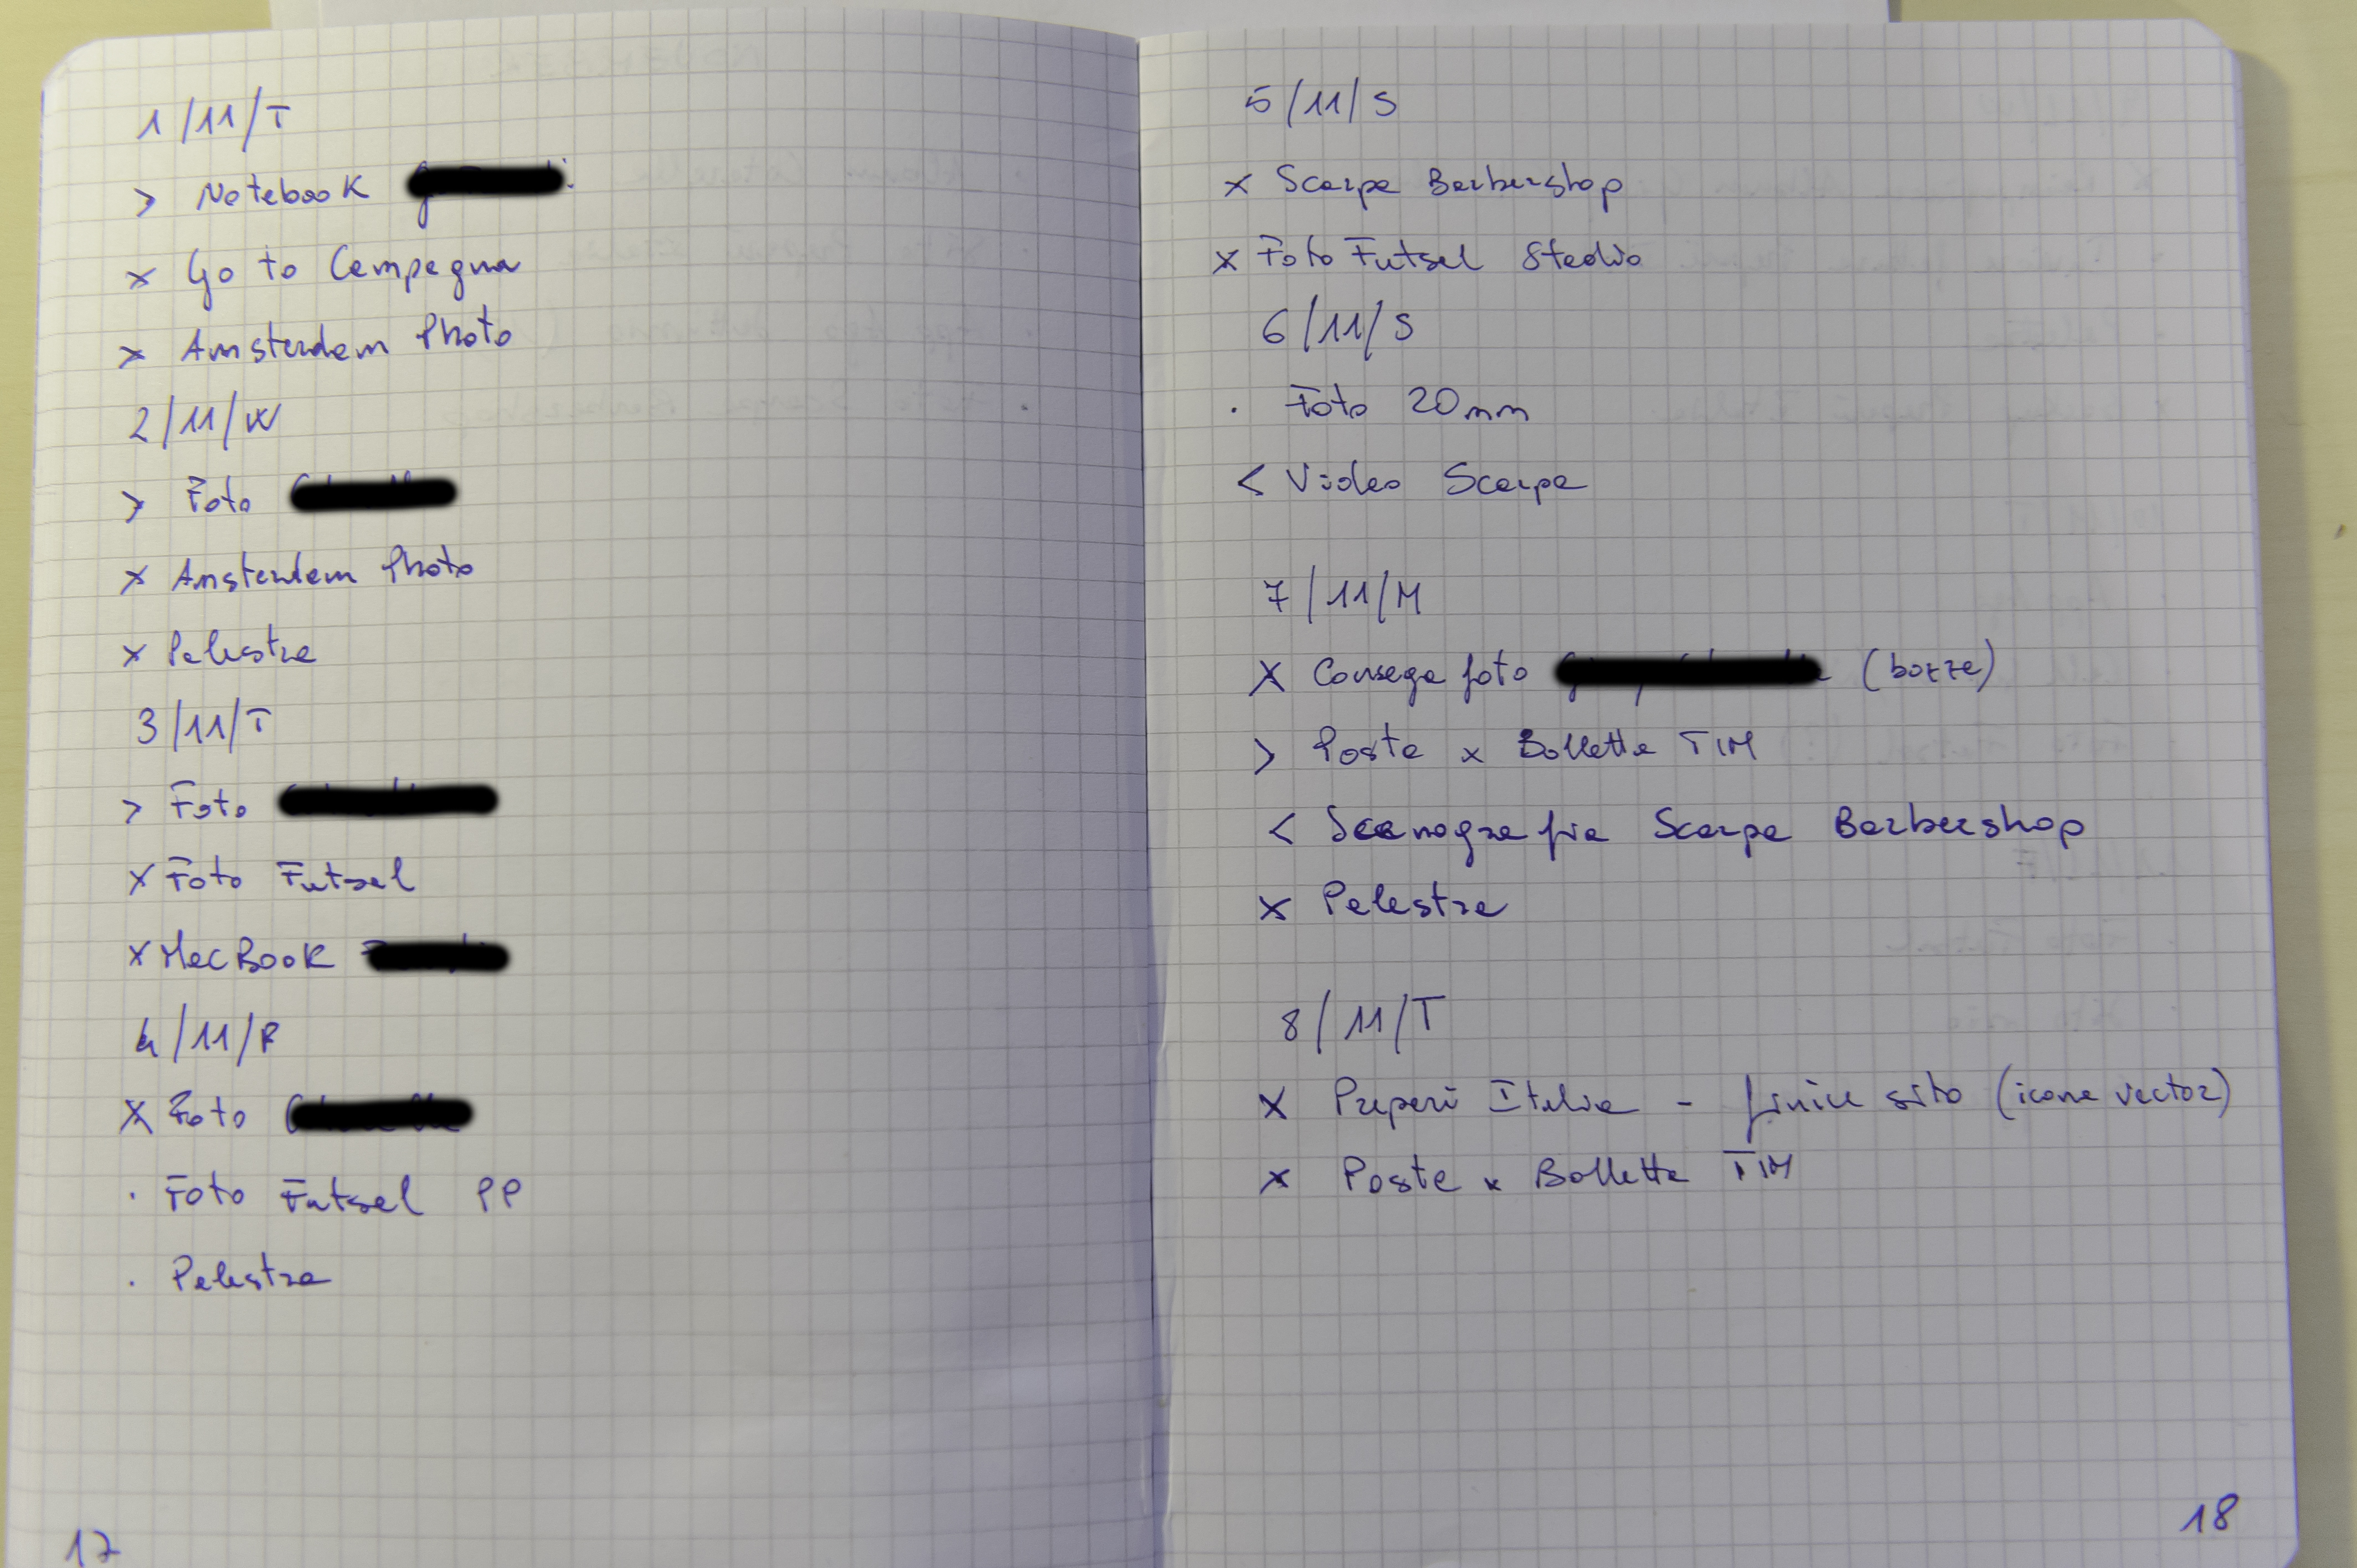 1/11/T
> Notebook
x Go to Campagna
x Amsterdam Photo
2/11/W
> Foto
x Amsterdam Photo
x Palestra
3/11/T
> Foto
x Foto Futsal
x MacBook
4/11/F
x Foto
· Foto Futsal PP
· Palestra
17
5/11/S
x Scarpa Barbershop
x Foto Futsal Stadio
6/11/S
· Foto 20mm
< Video Scarpa
7/11/M
x Consega foto (bozze)
> Posta x Bolletta TIM
< Scenografia Scarpa Barbershop
x Palestra
8/11/T
x Pupari Italia - finire sito (icona vector)
x Posta x Bolletta TIM
18